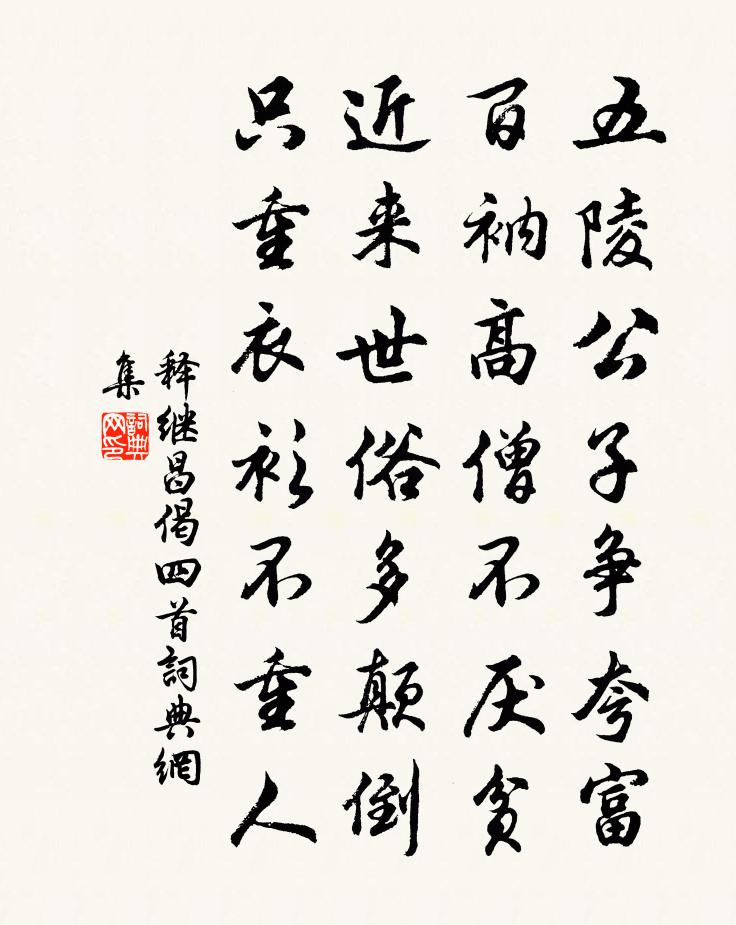 五陵公子争夸富
百衲高僧不厌贫
近来世俗多颠倒
只重衣衫不重人
释继昌偈四首詞典網
集
詞典
网印